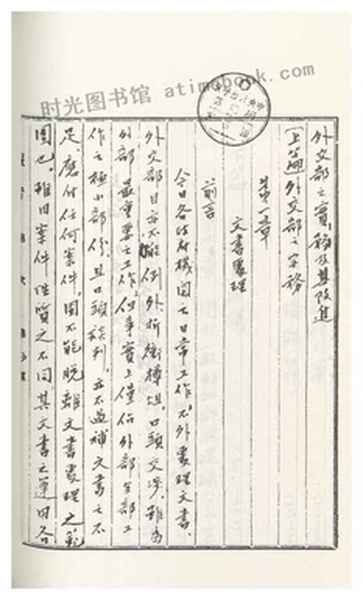 时光图书馆 atimebook.com
外交部之實務及其改進
[上篇]外交部之实務
第一章
文書處理
前言
今日各政府機関之日常工作,不外處理文書,
外交部自亦不能例外,折衝樽俎,口頭交涉,雖為
外部最重要之工作,但事實上僅佔外部全部工
作之極小部份,且口頭談判,亦不過補文書之不
足,應付任何案件,固不能脫離文書處理之範
圍也。雖因案件性質之不同,其文書之運用各